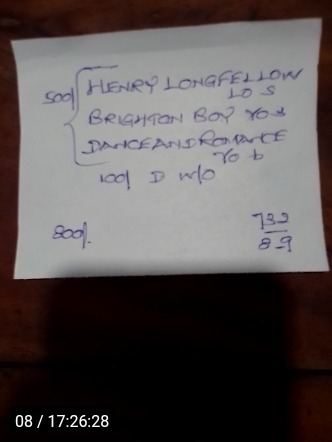 500/ HENRY LONGFELLOW
LO S
BRIGHTON BOY YO S
DANCEANDROMANCE
YO b
100/ D W/O
800/.
732
8-9
08 / 17:26:28